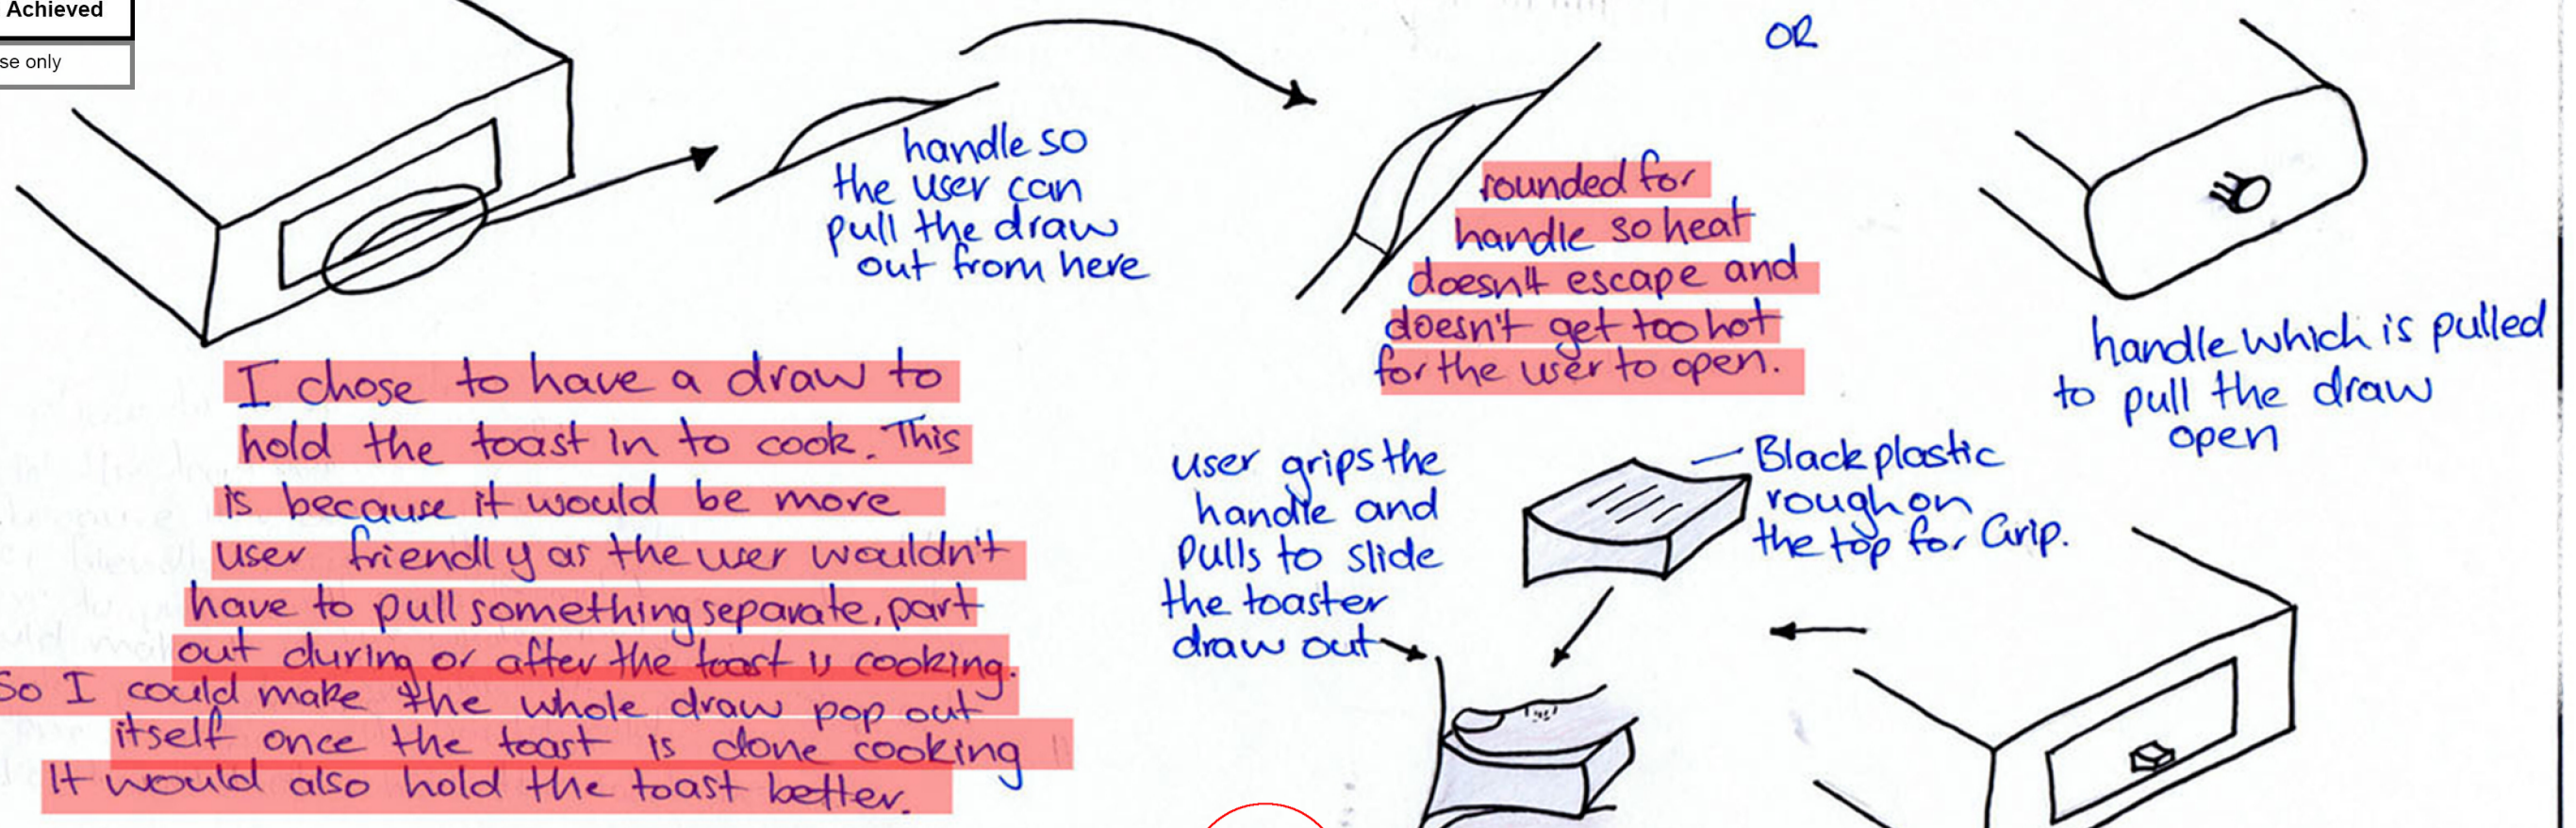 Achieved
se only
OR
handle so
the user can
pull the draw
out from here
rounded for
handle so heat
doesn't escape and
doesn't get too hot
for the user to open.
handle which is pulled
to pull the draw
open
I chose to have a draw to
hold the toast in to cook. This
is because it would be more
user friendly as the user wouldn't
have to pull something separate, part
out during or after the toast is cooking.
So I could make the whole draw pop out
itself once the toast is done cooking
It would also hold the toast better.
user grips the
handle and
Pulls to slide
the toaster
draw out
Black plastic
rough on
the top for Grip.